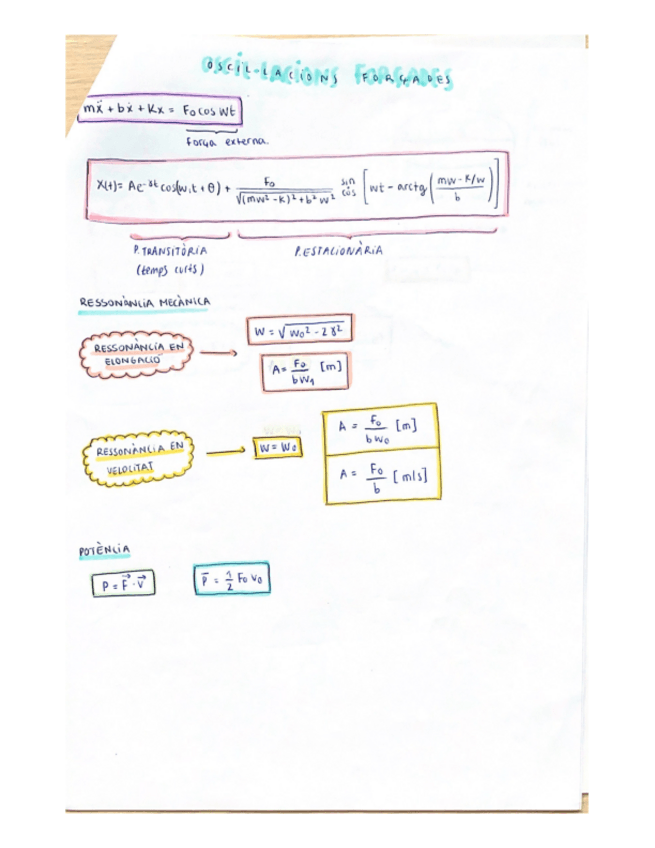 OSCIL·LACIONS FORÇADES
mẍ + bẋ + Kx = F₀ cos wt
força externa.
X(t) = Ae^-γt cos(w₁t + θ) + F₀ / √((mw² - K)² + b²w²) sin cos [wt - arctg((mw - K/w) / b)]
P. TRANSITÒRIA
(temps curts)
P. ESTACIONÀRIA
RESSONÀNCIA MECÀNICA
RESSONÀNCIA EN
ELONGACIÓ
W = √(w₀² - 2γ²)
A = F₀ / bw₁ [m]
RESSONÀNCIA EN
VELOCITAT
W = W₀
A = F₀ / bw₀ [m]
A = F₀ / b [m/s]
POTÈNCIA
P = F⃗ · V⃗
P̄ = 1/2 F₀ v₀